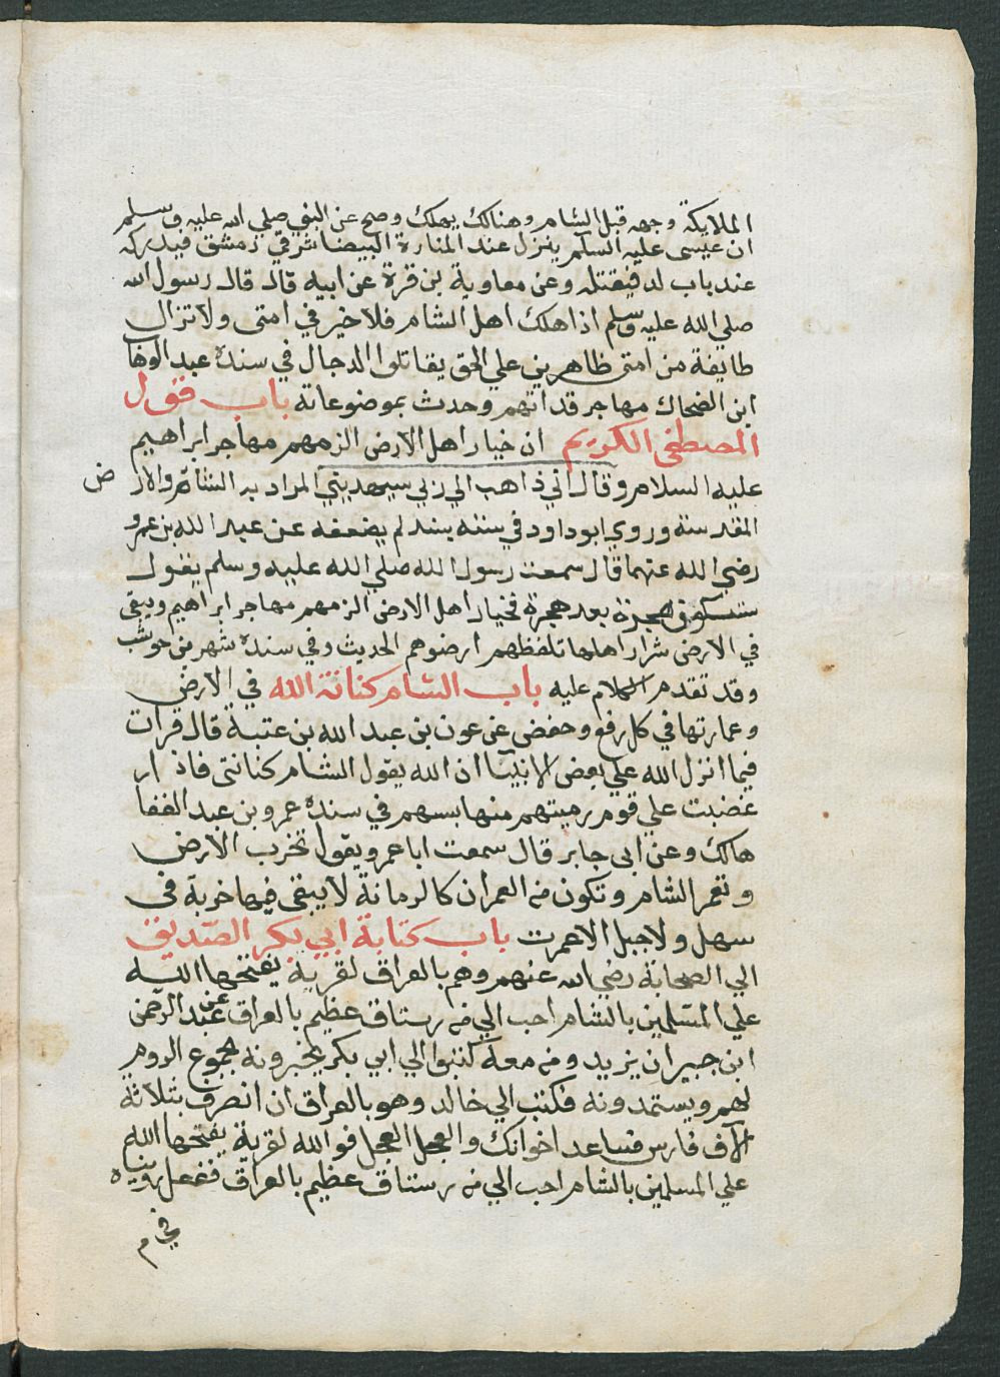 الملايكة وجهه قبل الشام وهنالك يهلك وصح عن النبي صلي الله عليه وسلم
ان عيسي عليه السلم ينزل عند المنارة البيضا شرقي دمشق فيدركه
عند باب لد فيقتله وعن معاوية بن قرة عن ابيه قال قال رسول الله
صلي الله عليه وسلم اذا هلك اهل الشام فلا خير في امتي ولا تزال
طايفة من امتي ظاهرين علي الحق يقاتلوا الدجال في سنده عبد الوهاب
ابن الضحاك مهاجر قد اتهم وحدث بموضوعاته باب قول
المصطفي الكريم ان خيار اهل الارض الزمهم مهاجر ابراهيم
عليه السلام وقال اني ذاهب الي ربي سيهديني المراد به الشام والارض
المقدسة وروي ابو داود في سننه بسند لم يضعفه عن عبد الله بن عمرو
رضي الله عنهما قال سمعت رسول الله صلي الله عليه وسلم يقول
ستكون هجرة بعد هجرة فخيار اهل الارض الزمهم مهاجر ابراهيم ويبقي
في الارض شرار اهلها تلفظهم ارضوهم الحديث وفي سنده شهر بن حوشب
وقد تقدم الكلام عليه باب الشام كنانة الله في الارض
وعمارتها في كل رفع وخفض عن عون بن عبد الله بن عتبة قال قرات
فيما انزل الله علي بعض الانبيا ان الله يقول الشام كنانتي فاذا
غضبت علي قوم رميتهم منها بسهم في سنده عمرو بن عبد الغفار
هالك وعن ابي جابر قال سمعت ابا عمرو يقول تخرب الارض
وتعمر الشام وتكون من العمران كالرمانة لا يبقي فيها خربة في
سهل ولا جبل الا عمرت باب كتابة ابي بكر الصديق
الي الصحابة رضي الله عنهم وهم بالعراق لقرية يفتحها الله
علي المسلمين بالشام احب الي من رستاق عظيم بالعراق عن عبد الرحمن
ابن جبير ان يزيد ومن معه كتبوا الي ابي بكر يخبرونه بجموع الروم
لهم ويستمدونه فكتب الي خالد وهو بالعراق ان انصرف بثلاثة
الاف فارس فساعد اخوانك والعجل العجل فوالله لقرية يفتحها الله
علي المسلمين بالشام احب الي من رستاق عظيم بالعراق ففعل